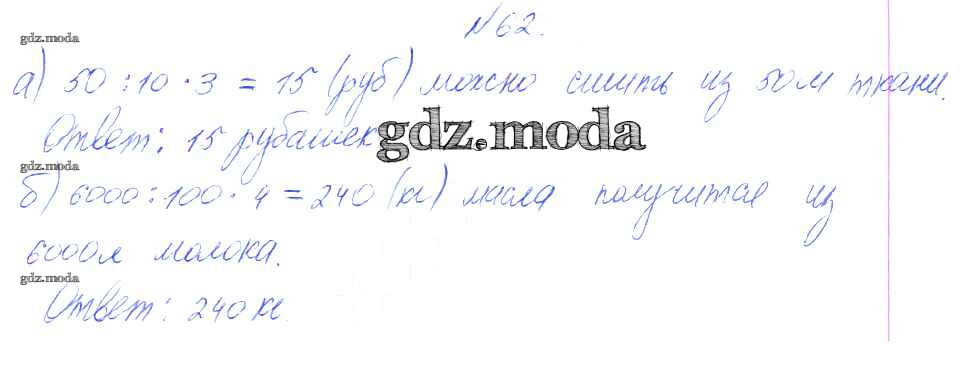 №62.
gdz.moda
а) 50 : 10 · 3 = 15 (руб) можно сшить из 50м ткани.
Ответ: 15 рубашек
gdz.moda
gdz.moda
б) 6000 : 100 · 4 = 240 (кг) масла получится из
6000л молока.
gdz.moda
Ответ: 240 кг.